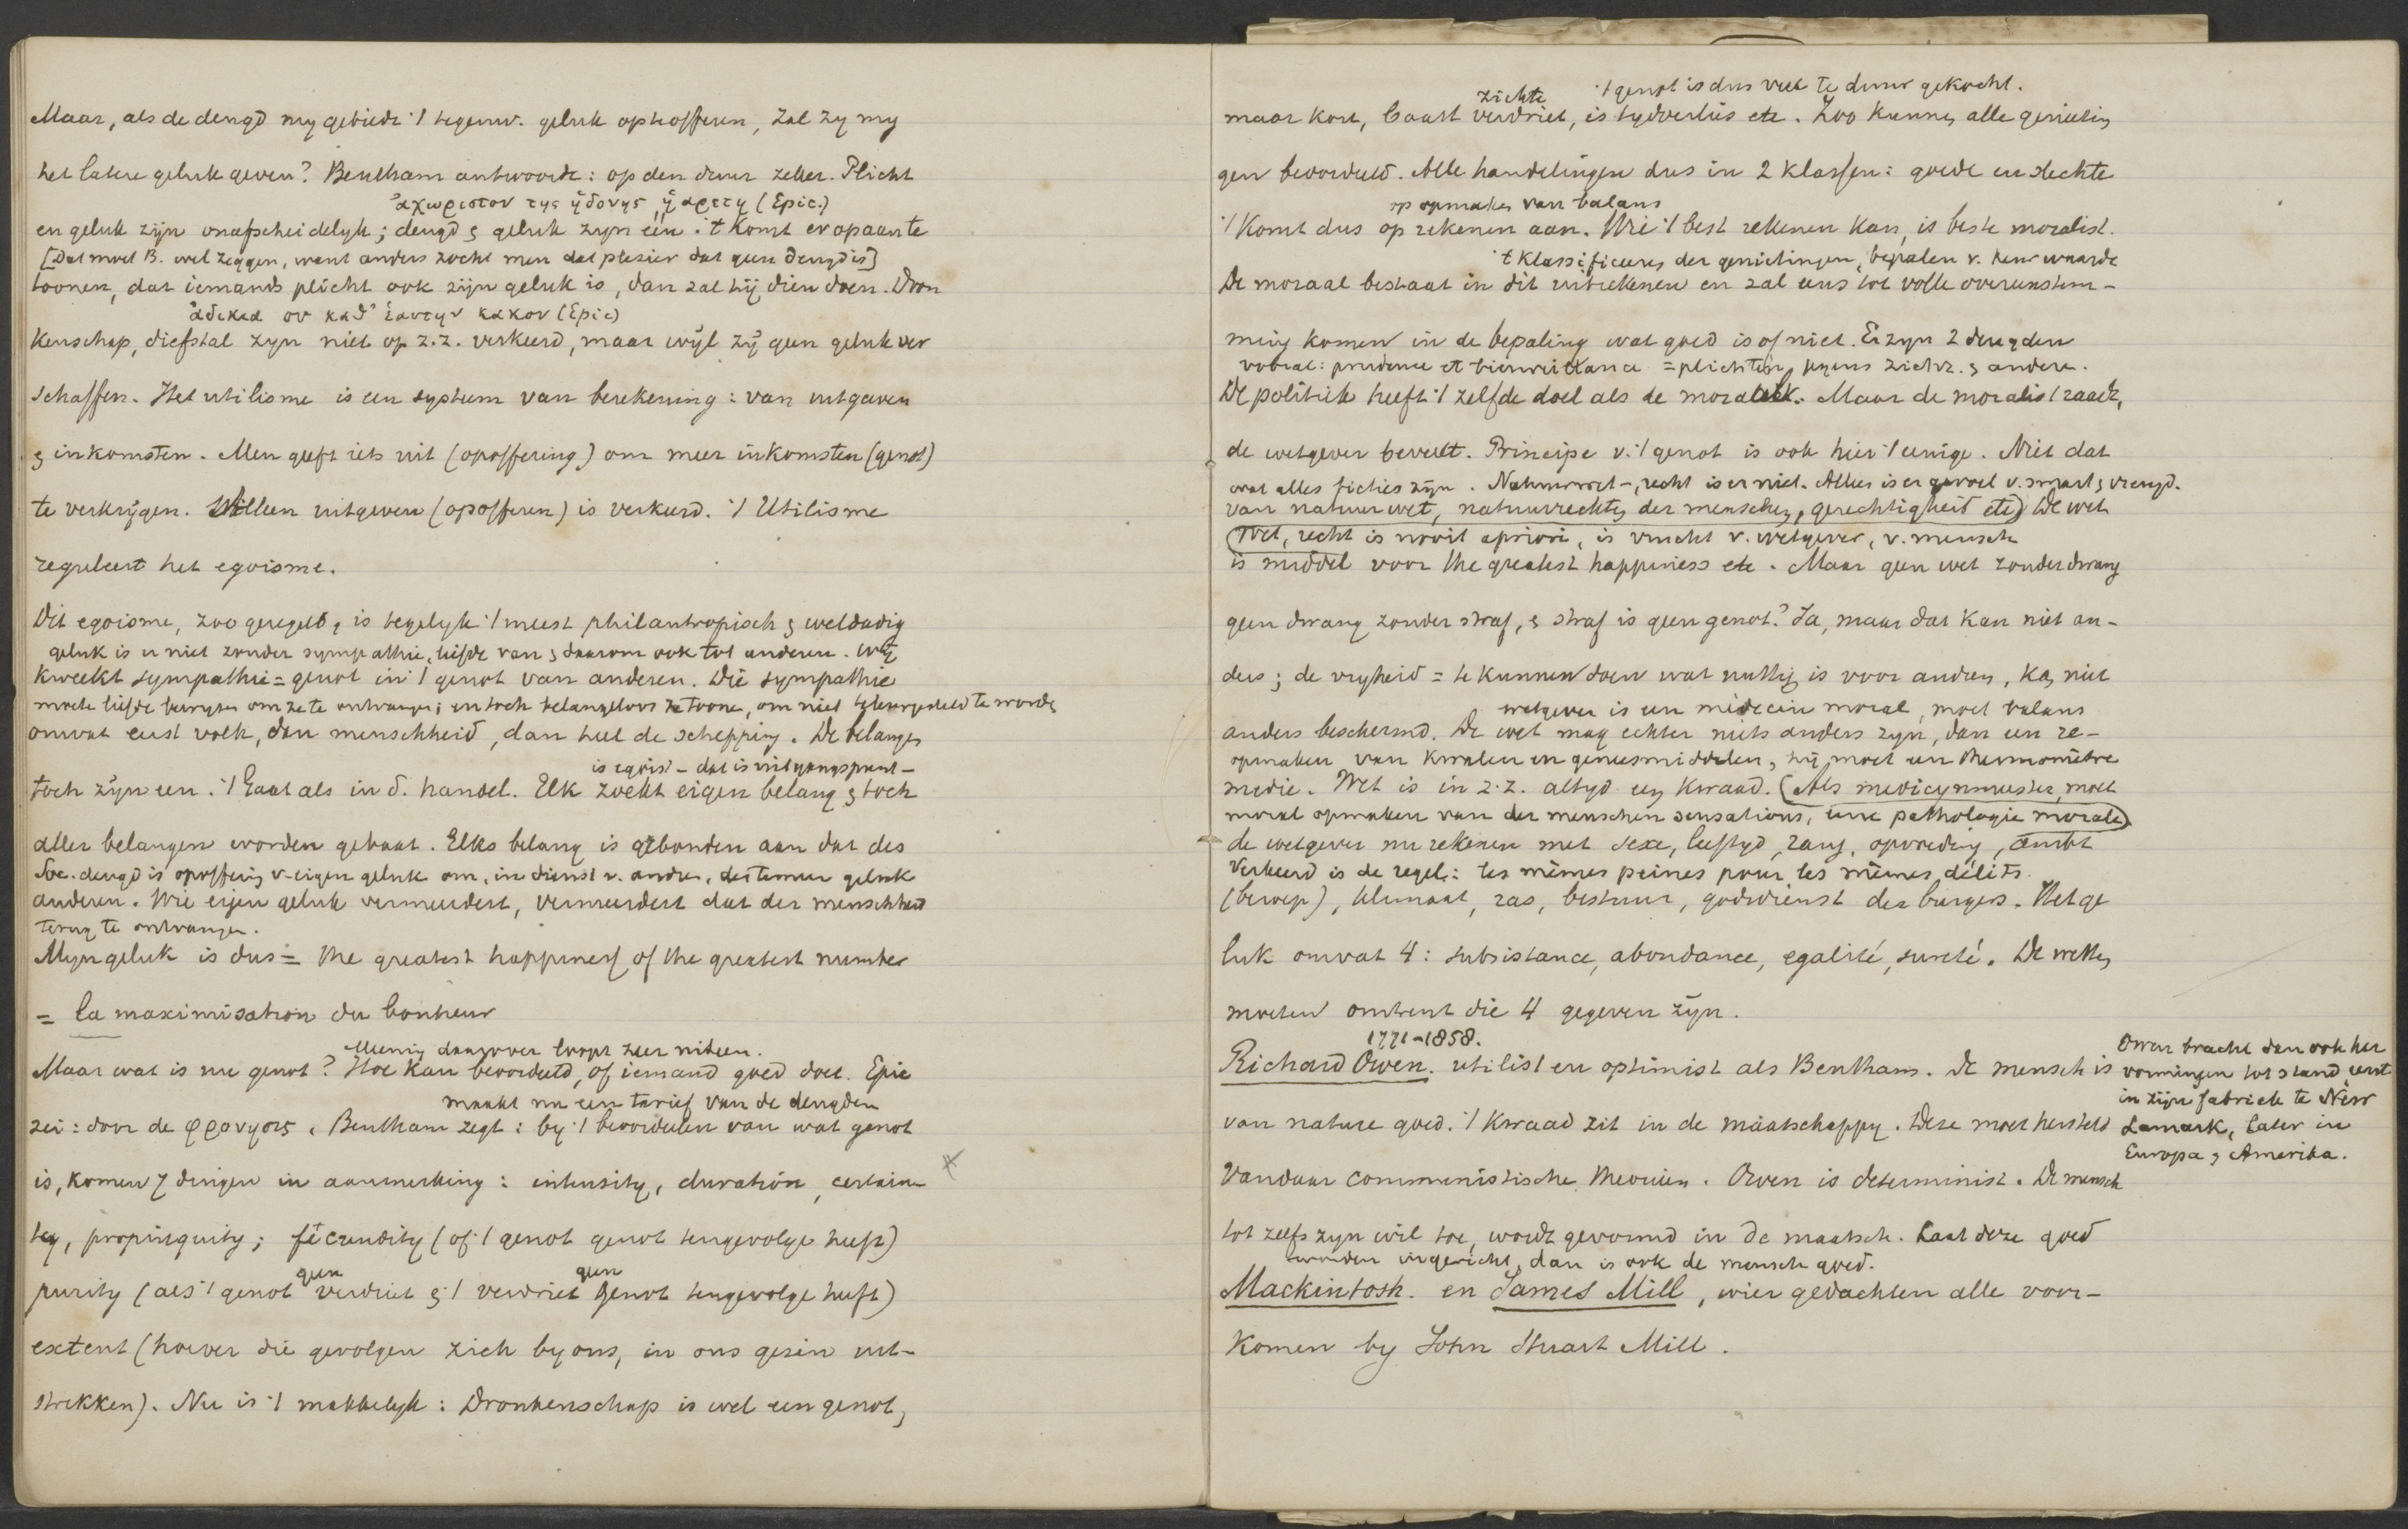 Maar, als de deugd my gebiedt 't tegenw. geluk opteofferen, zal zy my
het latere geluk geven? Bentham antwoordt: op den duur zeker. Plicht
ἀχωριστον της ἡδονης ἡ αρετη (Epic.)
en geluk zijn onafscheidelyk; deugd & geluk zyn één. 't Komt er op aan te
[Dat moet B. wel zeggen, want anders zocht men dat plezier dat geen deugd is]
toonen, dat iemands plicht ook zijn geluk is, dan zal hij dien doen. Dron
ἀδικια ου καθ' ἑαυτην κακον (Epic)
kenschap, diefstal zyn niet op z.z. verkeerd, maar wijl zij geen geluk ver
schaffen. Het utilisme is een systeem van berekening: van uitgaven
& inkomsten. Men geeft iets uit (opoffering) om meer inkomsten (genot)
te verkrijgen. Alleen uitgeven (opofferen) is verkeerd. 't Utilisme
reguleert het egoisme.
Dit egoisme, zoo geregeld, is tegelyk 't meest philantropisch & weldadig
geluk is er niet zonder sympathie, liefde van & daarom ook tot anderen. Wij
kweekt sympathie = genot in 't genot van anderen. Die sympathie
moete liefde bewyzen om ze te ontvangen; en toch belangeloos te toonen, om niet teleurgesteld te worden
omvat eerst volk, dan menschheid, dan heel de schepping. De belangen
is egoist - dat is uitgangspunt -
toch zijn een. 't Gaat als in d. handel. Elk zoekt eigen belang & toch
aller belangen worden gebaat. Elks belang is gebonden aan dat des
Soc. deugd is opoffering v. eigen geluk om, in dienst v. andren, des te meer geluk
anderen. Wie eigen geluk vermeerdert, vermeerdert dat der menschheid
terug te ontvangen.
Myn geluk is dus = the greatest happiness of the greatest number
= la maximisation du bonheur
Meenig daarover loopt zeer uiteen.
Maar wat is nu genot? Hoe kan beoordeeld, of iemand goed doet. Epic
maakt nu een tarief van de deugden
zei: door de φρονησις. Bentham zegt: by 't beoordeelen van wat genot
is, komen 7 dingen in aanmerking: intensity, duration, certain-
ty, propinquity; fécundity (of 't genot genot tengevolge heeft)
geen geen
purity (als 't genot verdriet & 't verdriet genot tengevolge heeft)
extent (hoever die gevolgen zich by ons, in ons gezin uit-
strekken). Nu is 't makkelyk: Dronkenschap is wel een genot,
't genot is dus veel te duur gekocht.
zichte
maar kort, baart verdriet, is tydverlies etc. Zoo kunnen alle genietin
gen beoordeeld. Alle handelingen dus in 2 klassen: goede en slechte
op opmaken van balans
't Komt dus op rekenen aan. Wie 't best rekenen kan, is beste moralist.
't Klassificeeren der genietingen, bepalen v. hun waarde
De moraal bestaat in dit uitrekenen en zal eens tot volle overeenstem-
ming komen in de bepaling wat goed is of niet. Er zyn 2 deugden
vooral: prudence et bienveillance = plichten jegens zichz. & andere.
De politiek heeft 't zelfde doel als de moraal. Maar de moralist raadt,
de wetgever beveelt. Principe v. 't genot is ook hier 't eenige. Niet dat
wat alles ficties zijn. Natuurwet-, recht is er niet. Alles is er gevoel v. smart & vreugd.
van natuurwet, natuurrechten der menschen, gerechtigheid etc) De wet
(Wet, recht is nooit apriori, is vrucht v. wetgever, v. mensch
is middel voor the greatest happiness etc. Maar geen wet zonder dwang
geen dwang zonder straf, & straf is geen genot? Ja, maar dat kan niet an-
ders; de vryheid = te kunnen doen wat nuttig is voor andren, kan niet
wetgever is een médecin moral, moet balans
anders beschermd. De wet mag echter niets anders zyn, dan een re-
opmaken van kwalen en geneesmiddelen, hij moet een thermomètre
medie. Wet is in z.z. altyd een kwaad. (Als medicynmeester, moet
moral opmaken van der menschen sensations, eene pathologie morale)
de wetgever nu rekenen met sexe, leeftyd, rang, opvoeding, ambt
Verkeerd is de regel: les mêmes peines pour les mêmes délits.
(beroep), klimaat, ras, bestuur, godsdienst der burgers. Het ge
luk omvat 4: subsistance, abondance, egalité, sureté. De wetten
moeten omtrent die 4 gegeven zijn.
1771-1858.
Richard Owen. utilist en optimist als Bentham. De mensch is
van nature goed. 't Kwaad zit in de maatschappy. Deze moet hersteld
Vandaar communistische theoriën. Owen is determinist. De mensch
tot zelfs zyn wil toe, wordt gevormd in de maatsch. Laat deze goed
worden ingericht, dan is ook de mensch goed.
Owen bracht dan ook her
vormingen tot stand, eerst
in zijn fabriek te New
Lamark, later in
Europa & Amerika.
Mackintosh. en James Mill, wier gedachten alle voor-
komen by John Stuart Mill.